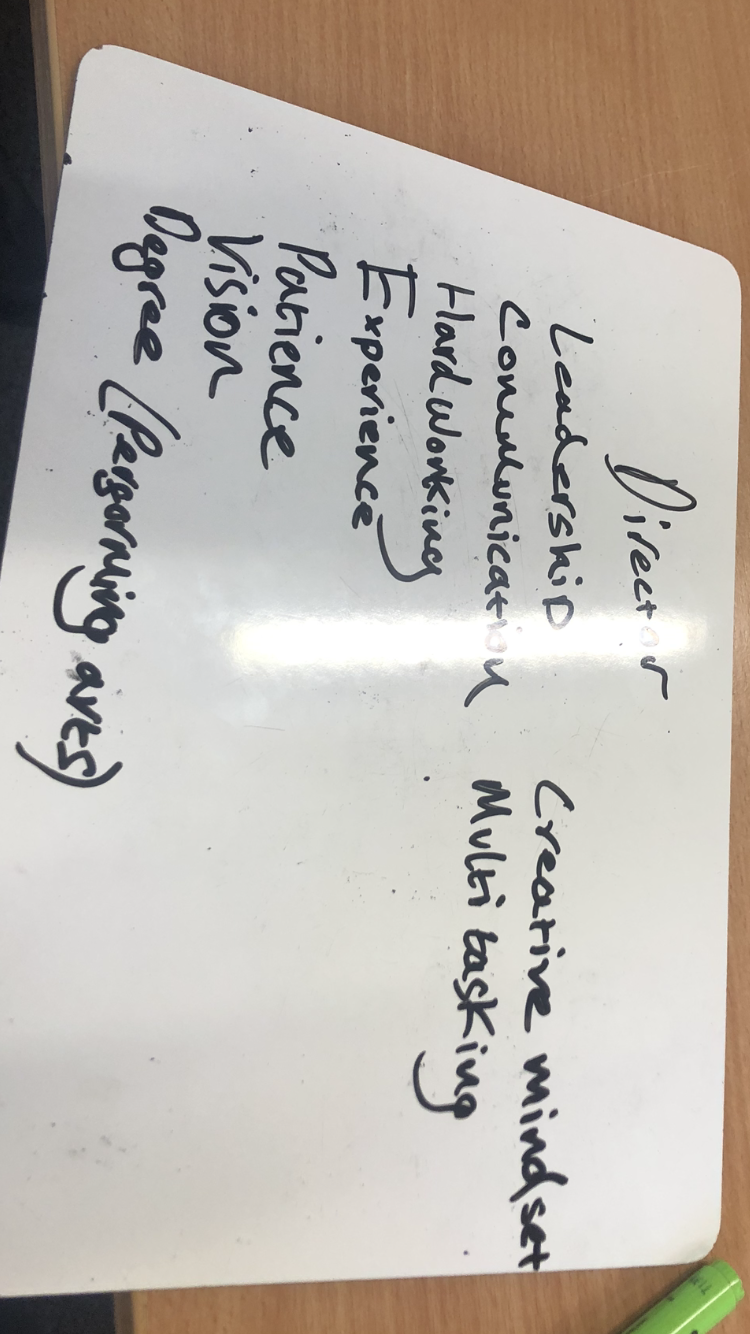 Director
Leadership
Communication
Hardworking
Experience
Patience
Vision
Degree (Performing arts)
Creative mindset
Multi tasking